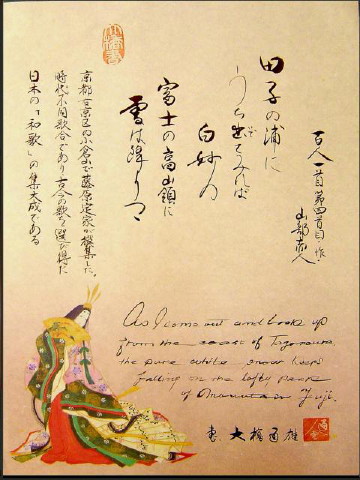 百人一首第四首目・作
山部赤人
田子の浦に
うち出てみれば
白妙の
富士の高嶺に
雪は降りつゝ
京都右京区の小倉山で藤原定家が撰集した、
時代不同歌合であり百人の歌を選び得た
日本の「和歌」の集大成である
As I come out and look up
from the coast of Tagonoura
the pure white snow keeps
falling on the lofty peak
of Mountain Fuji.
大橋
雄